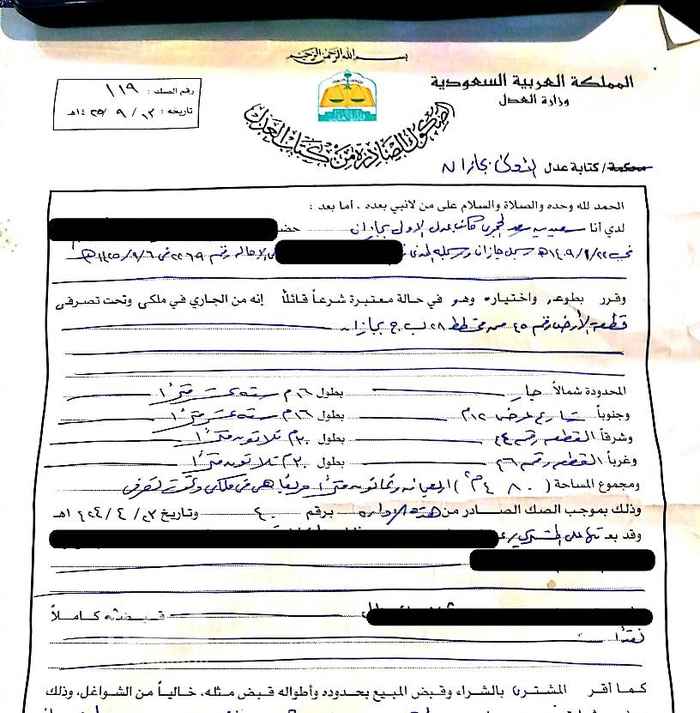 بسم الله الرحمن الرحيم
المملكة العربية السعودية
وزارة العدل
رقم الصك : ١١٩
تاريخه : ١٣ / ٩ / ١٤٢٥هـ
الصكوك الصادرة من كتاب العدل
محكمة / كتابة عدل بجازان
الحمد لله وحده والصلاة والسلام على من لانبي بعده . أما بعد :
لدي أنا كاتب عدل الأولى بجازان حضر
في ١٤٠٩/٩/٢٢هـ سجل جازان الاحالة رقم ٢٢٦٩ في ١٤٢٥/٩/٦هـ
وقرر بطوعه واختياره وهو في حالة معتبرة شرعاً قائلاً إنه من الجاري في ملكي وتحت تصرفي
قطعة الأرض رقم ٤٥ من مخطط ٢٨ ب ج بجازان
المحدودة شمالاً جار بطول ١٦م ستة عشر متراً
وجنوباً شارع عرض ١٢م بطول ١٦م ستة عشر متراً
وشرقاً القطعة رقم ٤٤ بطول ٣٠م ثلاثون متراً
وغرباً القطعة رقم ٤٦ بطول ٣٠م ثلاثون متراً
ومجموع المساحة ( ٤٨٠م٢ ) أربعمائة وثمانون متراً مربعاً هي في ملكي وتحت تصرفي
وذلك بموجب الصك الصادر من هذه الادارة برقم ٤٠ وتاريخ ٢٣ / ٤ / ١٤٢٤هـ
وقد بعت على المشتري
قبضته كاملاً
نقداً
كما أقر المشتري بالشراء وقبض المبيع بحدوده وأطواله قبض مثله، خالياً من الشواغل، وذلك